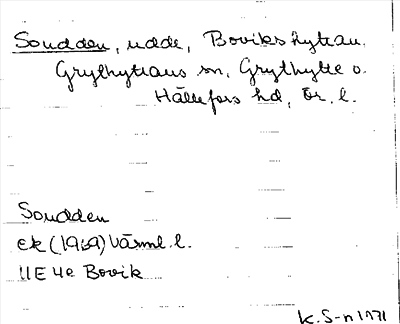 Soudden, udde, Bovikshyttan.
Grythyttans sn, Grythytte o.
Hällefors hd, Ör. l.
Soudden
ek (1969) Värml. l.
11E 4e Bovik
K. S-n 1971